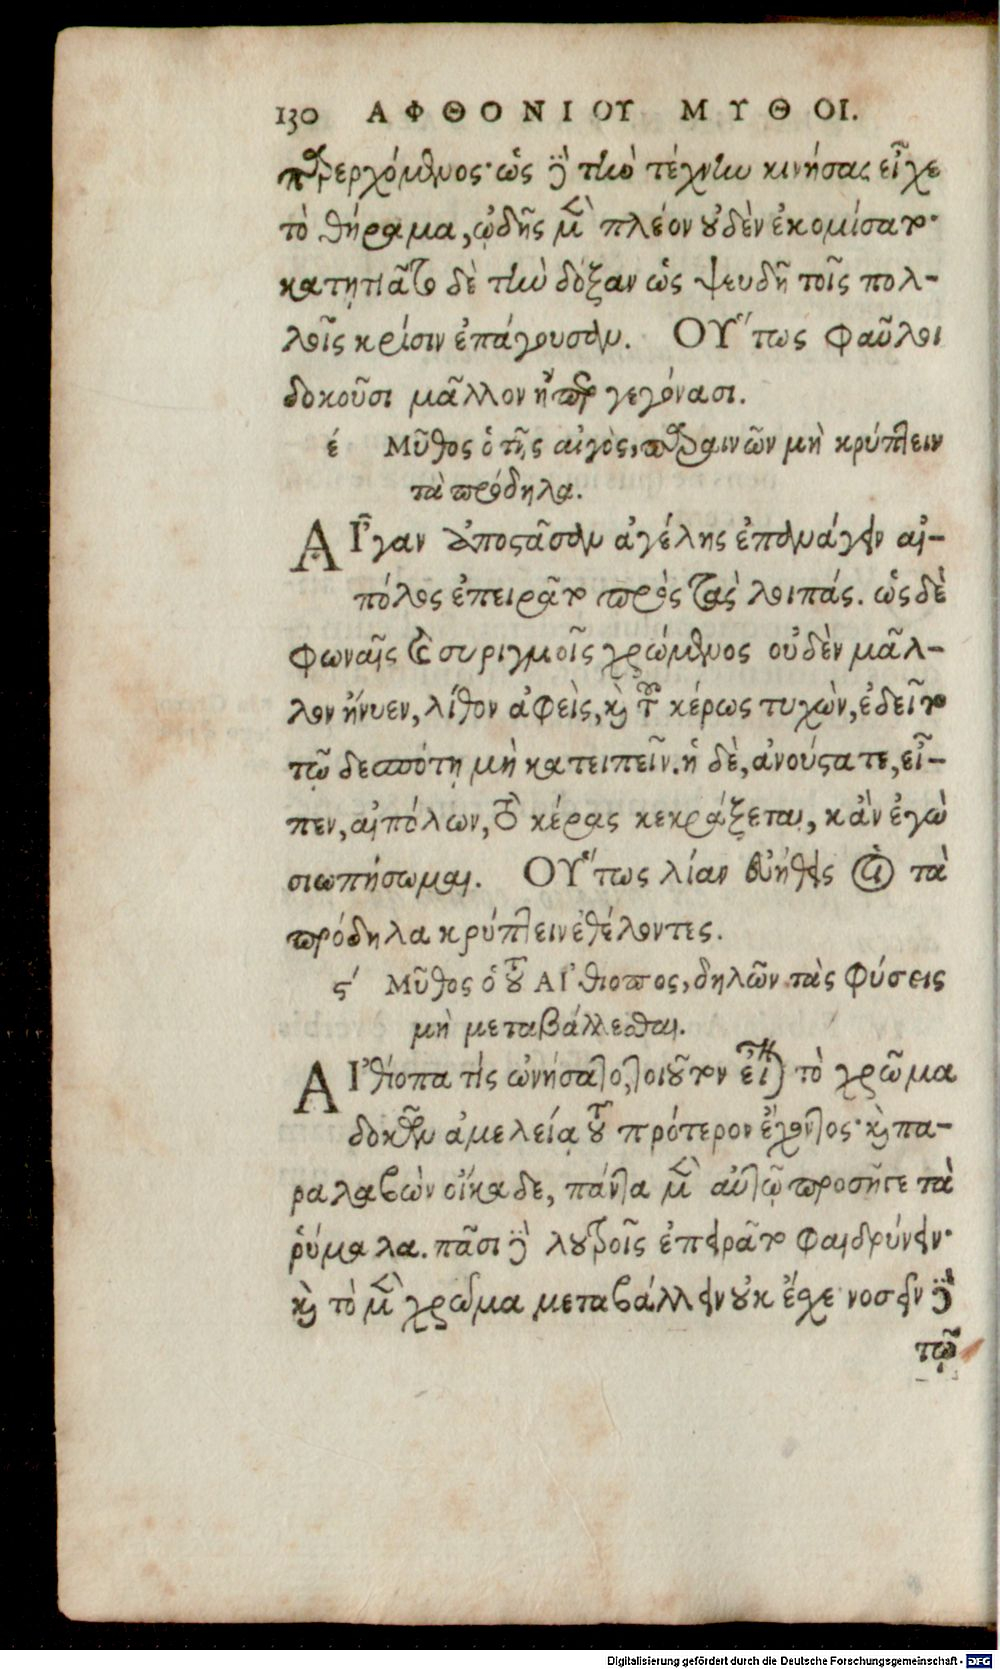 130 ΑΦΘΟΝΙΟΥ ΜΥΘΟΙ.
παρερχόμενος· ὡς δὲ τὴν τέχνην κινήσας εἶχε
τὸ θήραμα, ᾠδῆς μὲν πλέον οὐδὲν ἐκομίσατο·
κατῃτιᾶτο δὲ τὴν δόξαν ὡς ψευδῆ τοῖς πολ-
λοῖς κρίσιν ἐπάγουσαν. ΟΥ῞τως φαῦλοι
δοκοῦσι μᾶλλον ἤπερ γεγόνασι.
έ Μῦθος ὁ τῆς αἰγὸς, παραινῶν μὴ κρύπτειν
τὰ πρόδηλα.
ΑΙ῏γαν ἀποστᾶσαν ἀγέλης ἐπανάγειν αἰ-
πόλος ἐπειρᾶτο πρὸς τὰς λοιπάς. ὡς δὲ
φωναῖς καὶ συριγμοῖς χρώμενος οὐδὲν μᾶλ-
λον ἤνυεν, λίθον ἀφεὶς, καὶ τοῦ κέρως τυχὼν, ἐδεῖτο
τῷ δεσπότῃ μὴ κατειπεῖν. ἡ δὲ, ἀνούστατε, εἶ-
πεν, αἰπόλων, τὸ κέρας κεκράξεται, κἂν ἐγὼ
σιωπήσωμαι. ΟΥ῞τως λίαν εὐήθεις οἱ τὰ
πρόδηλα κρύπτειν ἐθέλοντες.
ϛ΄ Μῦθος ὁ τοῦ ΑΙ᾿θίοπος, δηλῶν τὰς φύσεις
μὴ μεταβάλλεσθαι.
ΑΙ᾿θίοπα τὶς ὠνήσατο, τοιοῦτον εἶναι τὸ χρῶμα
δοκῶν ἀμελείᾳ τοῦ πρότερον ἔχοντος· καὶ πα-
ραλαβὼν οἴκαδε, πάντα μὲν αὐτῷ προσῆγε τὰ
ῥύμαλα. πᾶσι δὲ λουτροῖς ἐπειρᾶτο φαιδρύνειν·
καὶ τὸ μὲν χρῶμα μεταβάλλειν οὐκ ἔσχε νοσεῖν δὲ
τῷ
Digitalisierung gefördert durch die Deutsche Forschungsgemeinschaft - DFG